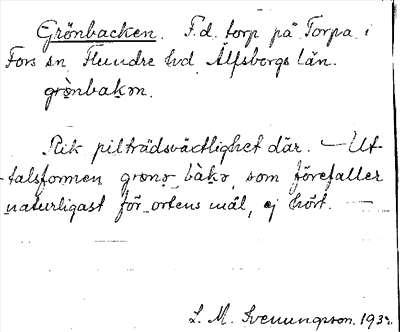 Grönbacken. F.d. torp på Torpa i
Fors sn Flundre hd. Älfsborgs län.
grönbakən.
Rik pilträdsväxtlighet där. — Ut-
talsformen grənə bàkə, som förefaller
naturligast för ortens mål, ej hört. —
L. M. Svenungsson. 193